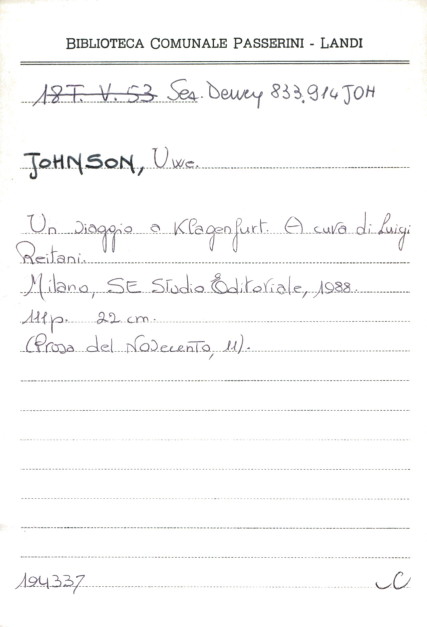 BIBLIOTECA COMUNALE PASSERINI - LANDI
18T. V. 53 Sez. Dewey 833.914 JOH
JOHNSON, Uwe.
Un viaggio a Klagenfurt. A cura di Luigi
Reitani.
Milano, SE Studio Editoriale, 1988.
111 p. 22 cm.
(Prosa del Novecento, 11).
194337